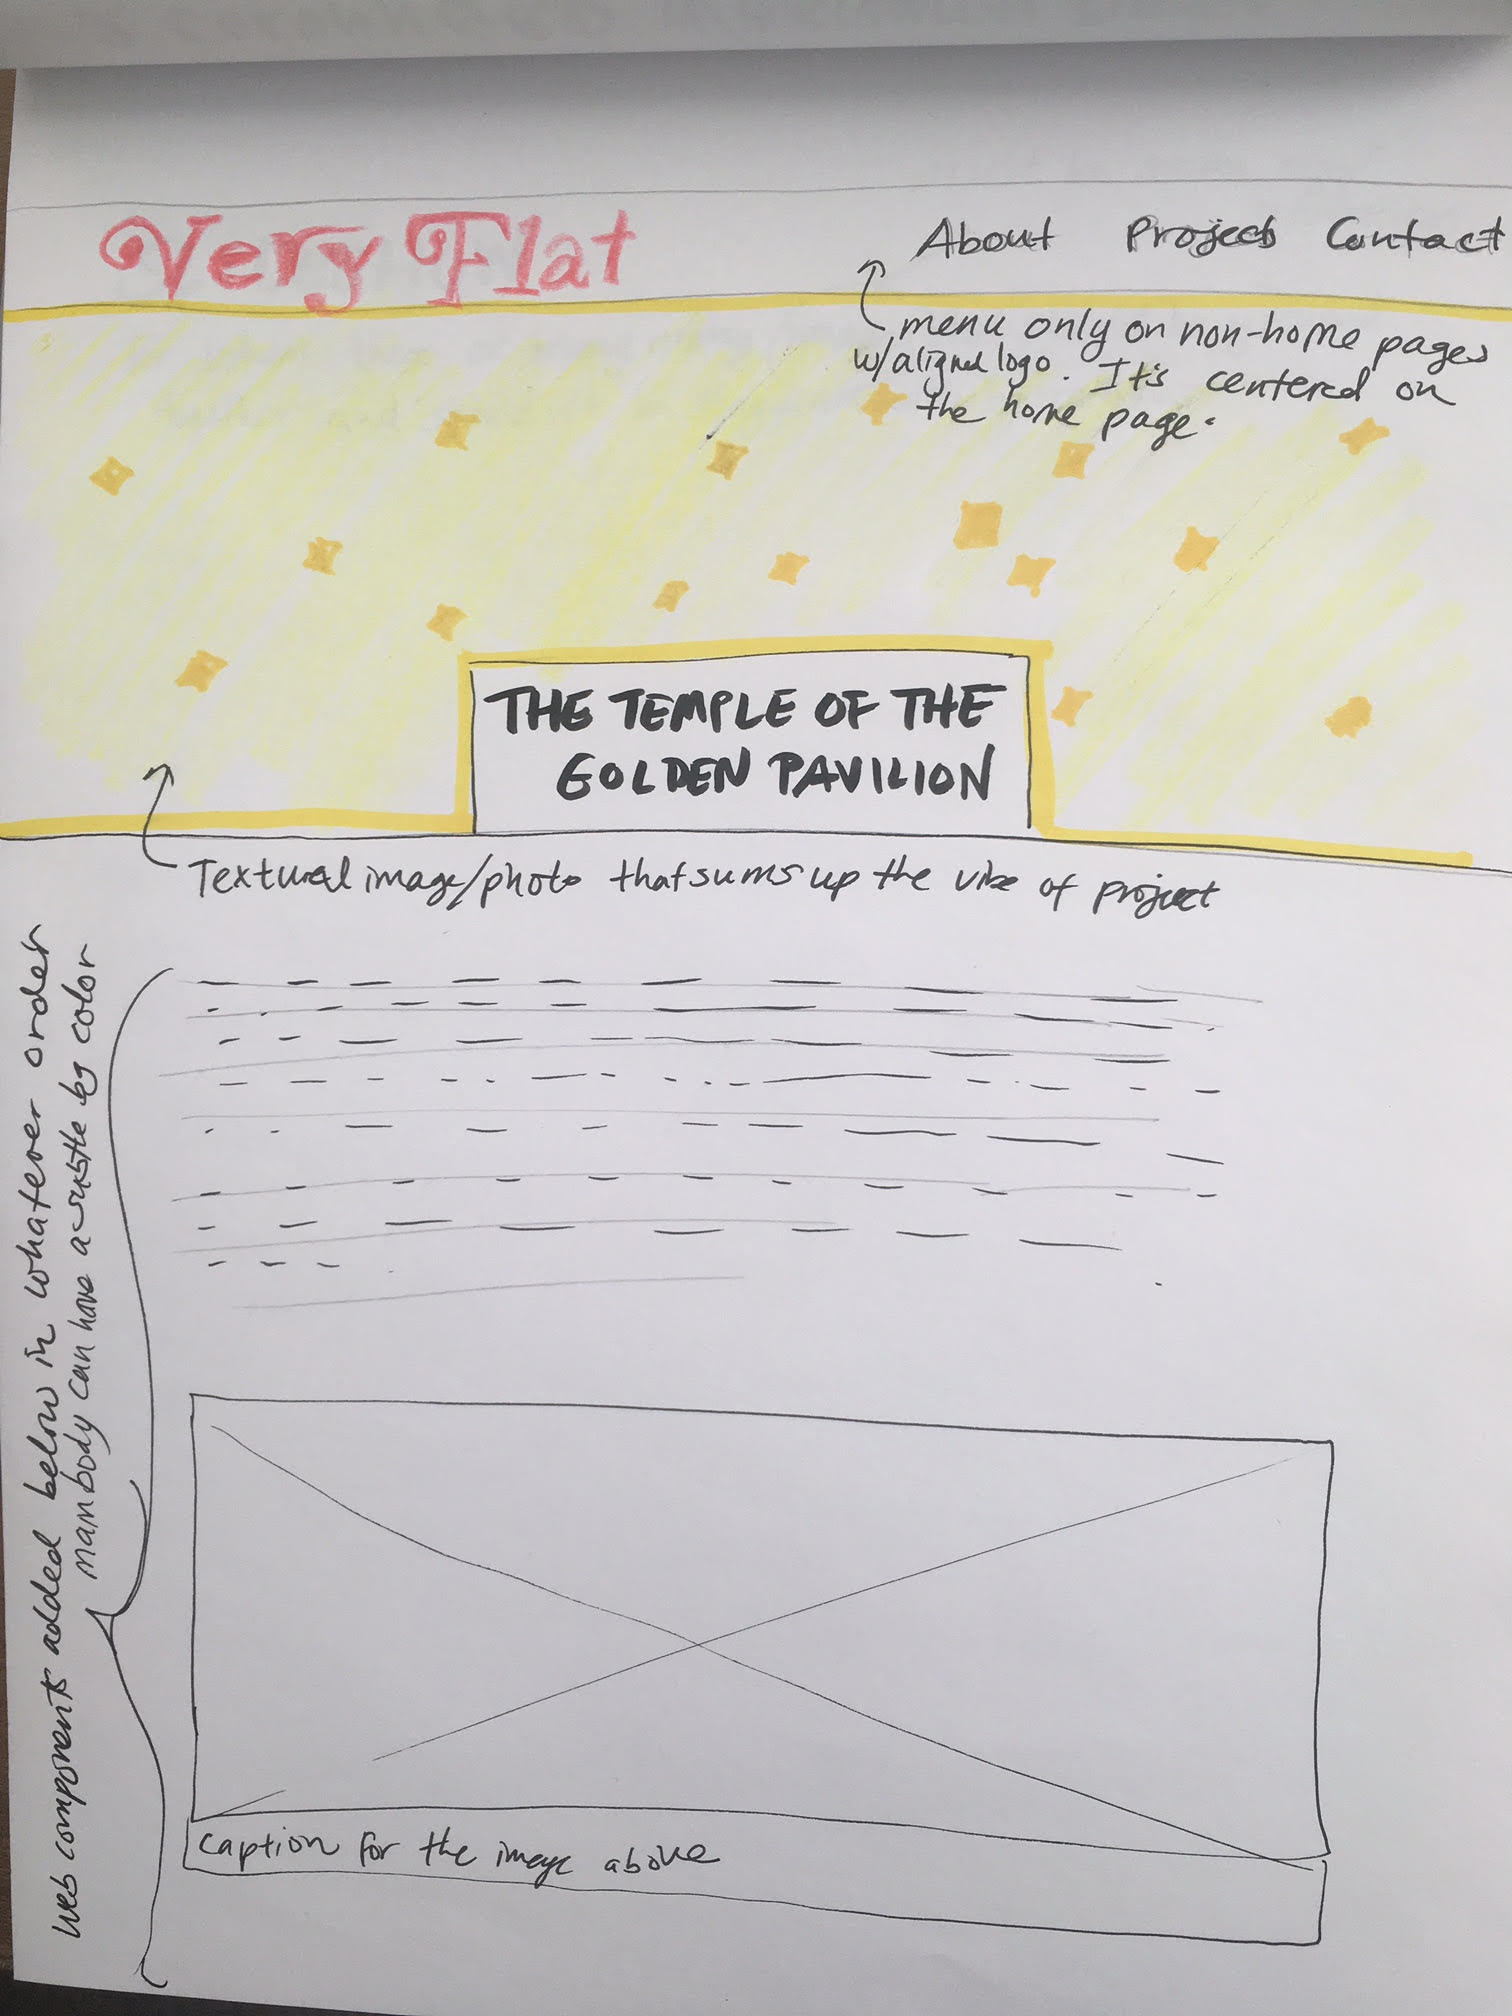 Very Flat
About Projects Contact
menu only on non-home pages
w/aligned logo. It's centered on
the home page.
THE TEMPLE OF THE
GOLDEN PAVILION
Textural image/photo that sums up the vibe of project
web components added below in whatever order
main body can have a subtle bg color
caption for the image above